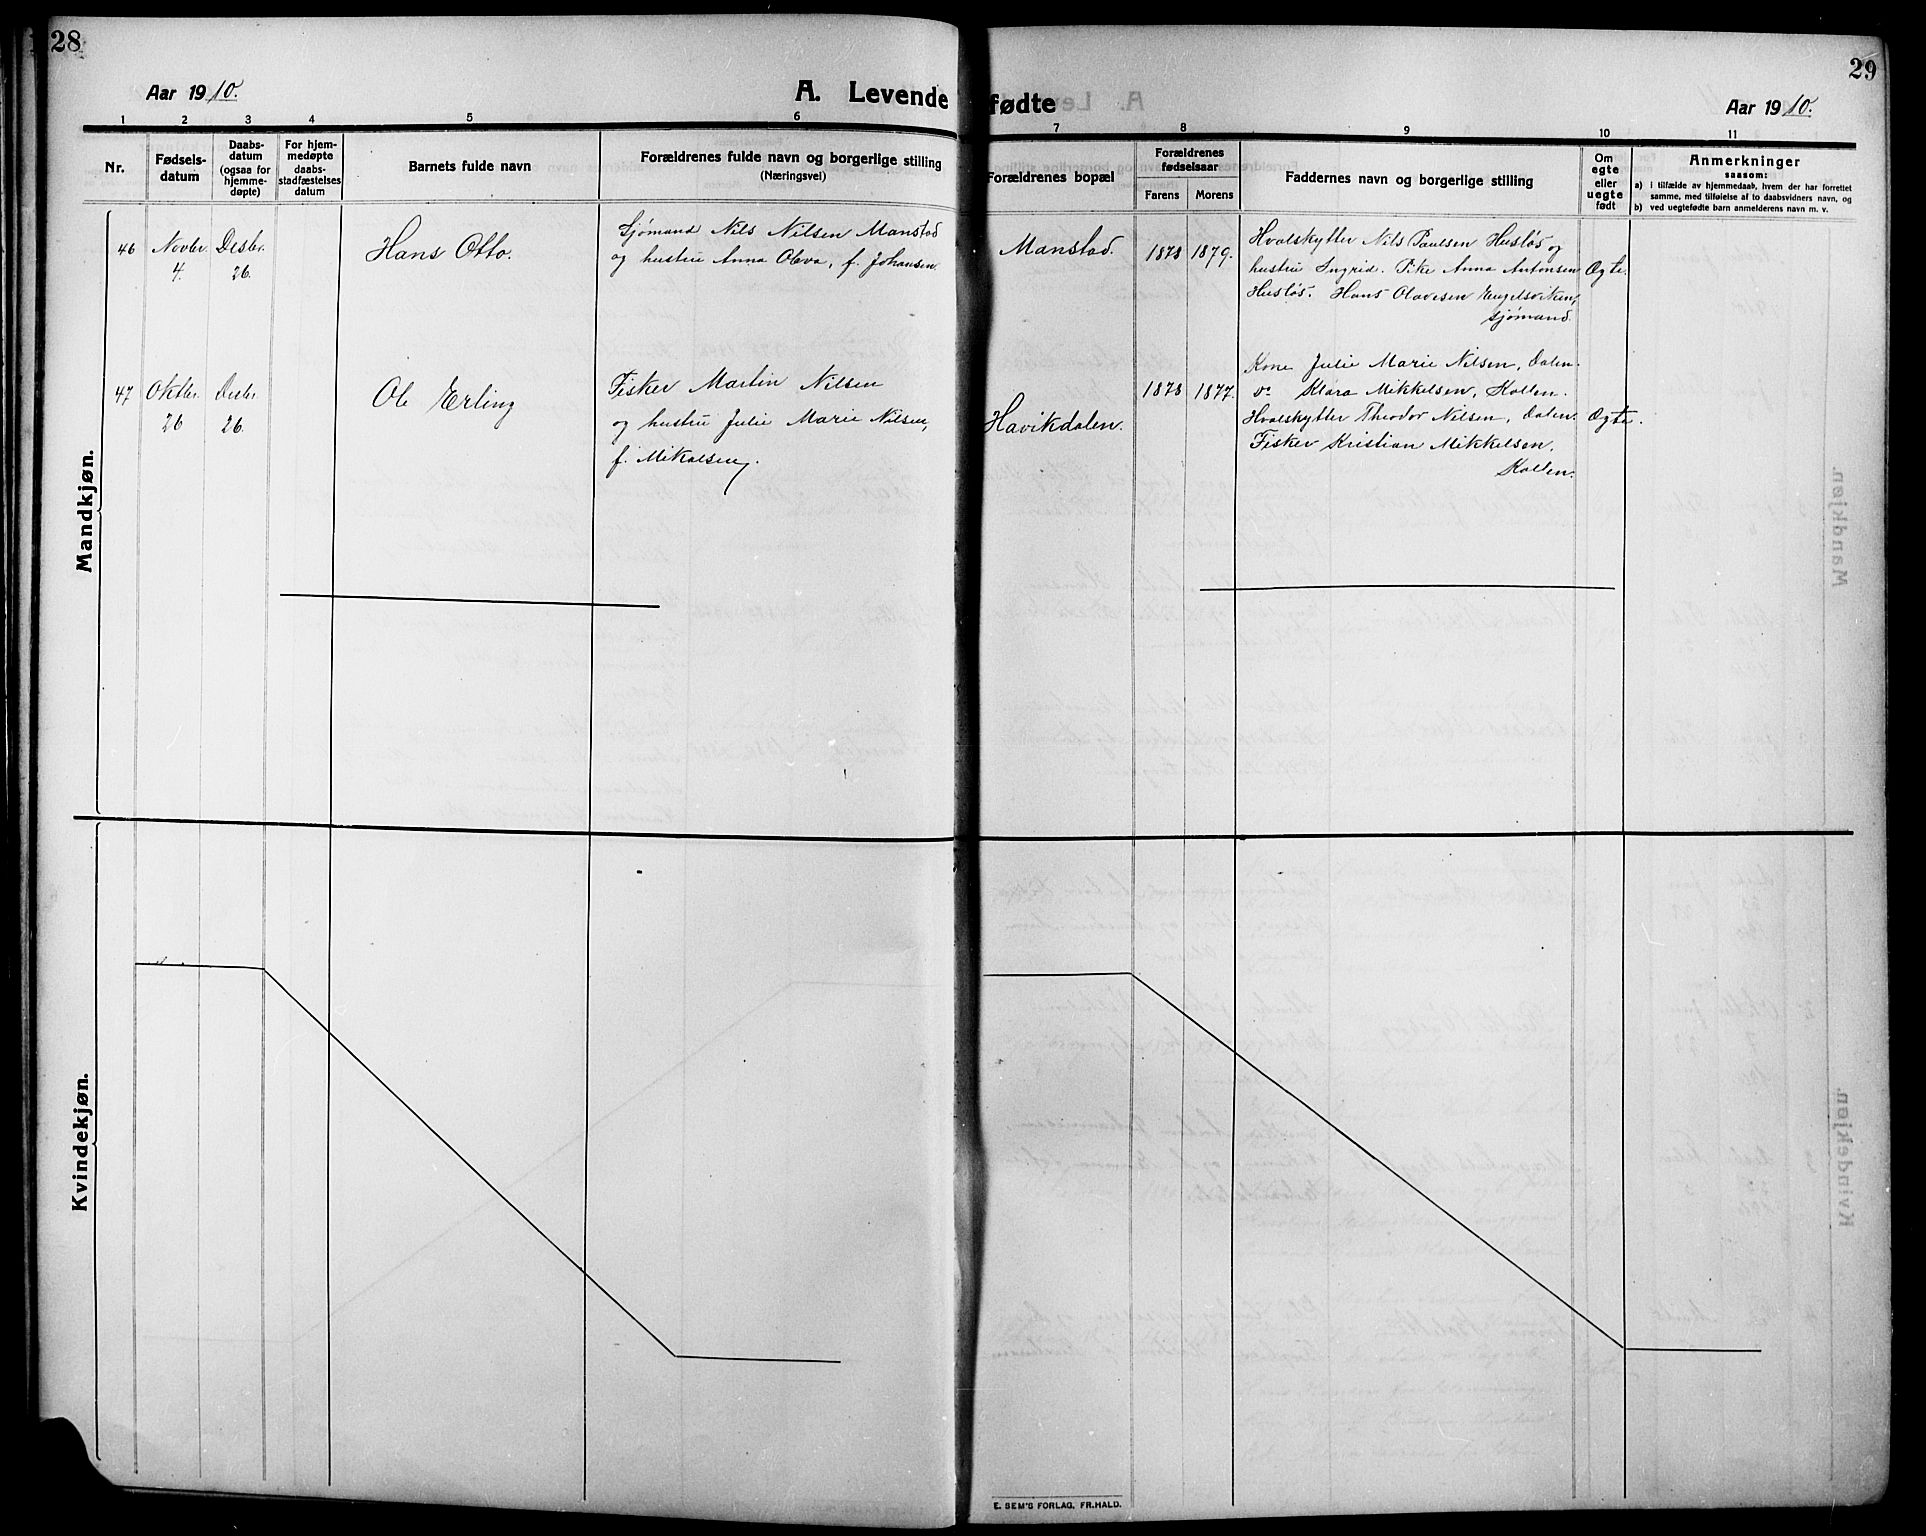 28
Aar 1910.
A. Levende
1 2 3 4 5 6
Nr.
Fødsels-
datum
Daabs-
datum
(ogsaa for
hjemme-
døpte)
For hjem-
medøpte
daabs-
stadfæstelses
datum
Barnets fulde navn
Forældrenes fulde navn og borgerlige stilling
(Næringsvei)
Mandkjøn.
46
Novbr.
4.
Desbr.
26.
Hans Otto.
Sjømand Nils Nilsen Manstad
og hustru Anna Oleva, f. Johansen.
47
Oktbr.
26
Desbr.
26.
Ole Erling
Fisker Martin Nilsen
og hustru Julie Marie Nilsen,
f. Mikalsen.
Kvindekjøn.
29
fødte
Aar 1910.
7 8 9 10 11
Forældrenes bopæl
Forældrenes
fødselsaar
Farens Morens
Faddernes navn og borgerlige stilling
Om
egte
eller
uegte
født
Anmerkninger
saasom:
a) i tilfælde av hjemmedaab, hvem der har forrettet
samme, med tilføielse af to daabsvidners navn, og
b) ved uegtefødte barn anmelderens navn m. v.
Manstad.
1878 1879.
Hvalskytter Nils Paulsen Husløs og
hustru Ingrid. Pike Anna Antonsen
Husløs. Hans Olavesen Engelsviken,
sjømand.
Ægte.
Havikdalen.
1878 1877.
Kone Julie Marie Nilsen, Dalen.
do Klara Mikkelsen, Kollen.
Hvalskytter Theodor Nilsen, Dalen.
Fisker Kristian Mikkelsen,
Kollen.
Ægte.
E. SEM'S FORLAG, FR.HALD.